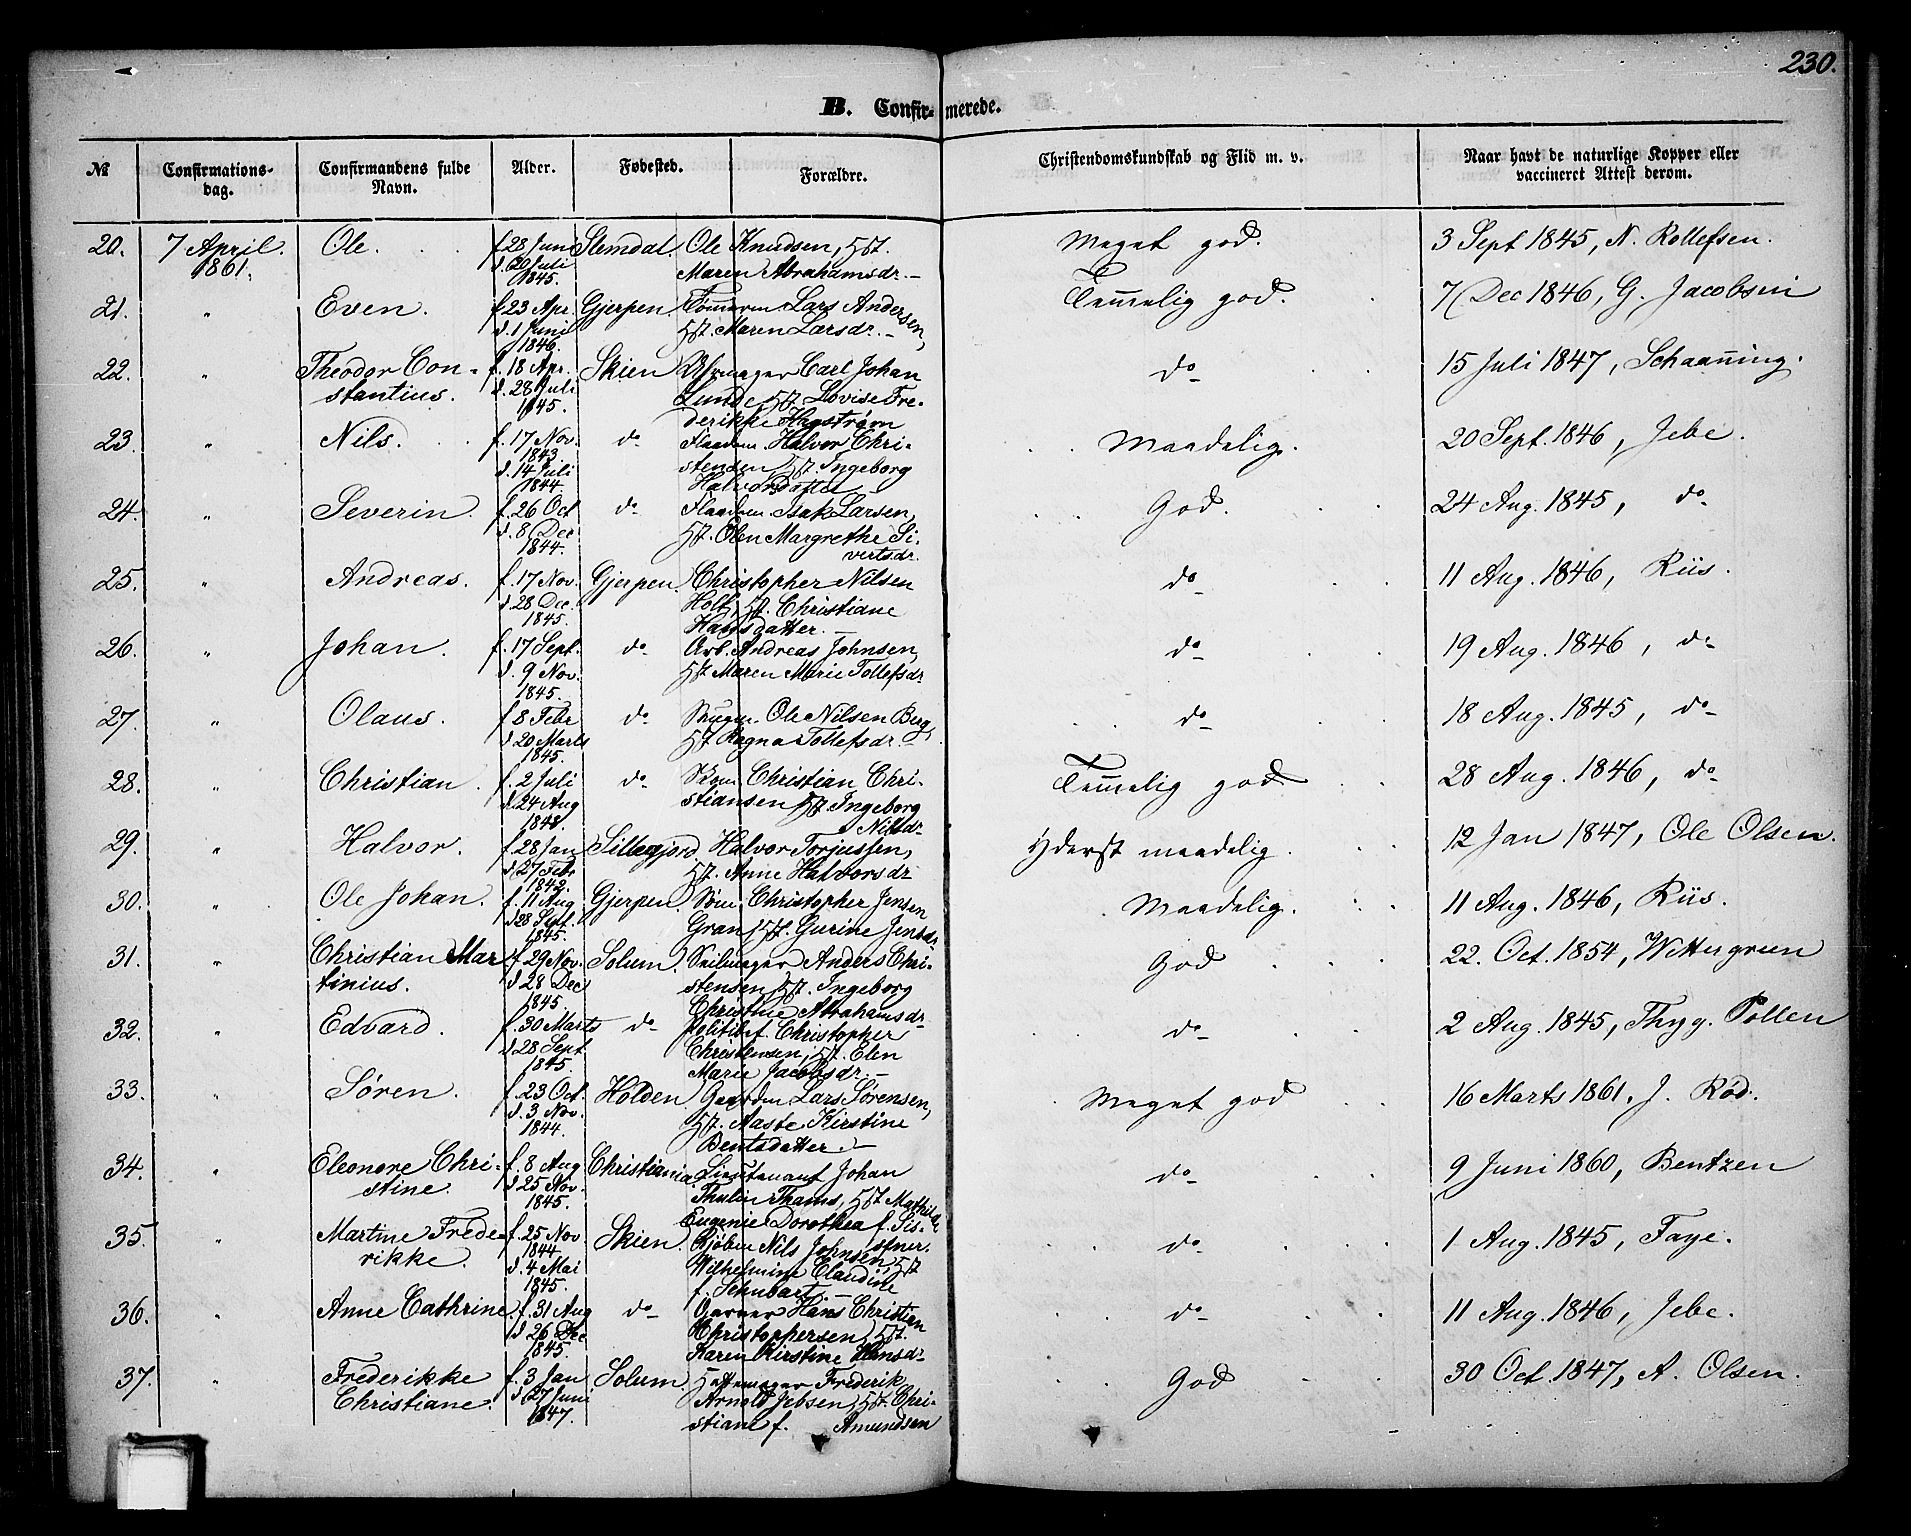 230.
B. Confirmerede.
№ Confirmations-dag. Confirmandens fulde Navn. Alder. Fødested. Forældre. Christendomskundskab og Flid m. v. Naar havt de naturlige Kopper eller vaccineret Attest derom.
20. 7 April Ole. f 28 Juni Slemdal. Ole Knudsen, Hst. Meget god. 3 Sept 1845, N. Rollefsen.
1861. d. 20 Juli Maren Abrahamsdr. —
1845.
21. " Even. f. 23 Apr. Gjerpen Tømmerm Lars Andersen, Temmelig god. 7 Dec 1846, G. Jacobsen
d. 1 Juni Hst. Maren Larsdr. —
1846.
22. " Theodor Con- f. 18 Apr. Skien Carl Johan do 15 Juli 1847, Schaanning.
stantius. d. 28 Juli Lunde, Hst. Lovise Fre-
1845. derikke Hagstrøm
23. " Nils. f. 17 Nov. do Halvor Chri- Maadelig. 20 Sept. 1846, Jebe.
1843 stensen, Hst. Ingeborg
d. 14 Juli Halvorsdatter
1844
24. " Severin. f. 26 Oct do Isak Larsen, God. 24 Aug. 1845, do
d. 8 Dec Hst. Olen Margrethe Si-
1844. vertsdr.
25. " Andreas. f. 17 Nov. Gjerpen. Christopher Nilsen do 11 Aug. 1846, Riis.
d. 28 Dec. Holt, Hst. Christiane
1845. Hansdatter. —
26. " Johan. f. 17 Sept. do Arb. Andreas Johnsen, do 19 Aug. 1846, do
d. 9 Nov. Hst Maren Marie Tollefsdr
1845.
27. " Olaus. f 8 Febr do Ole Nilsen Berg, do 18 Aug. 1845, do
d 20 Marts Hst Ragna Tollefsdr
1845.
28. " Christian. f. 2 Juli do Christian Chri- Temmelig god 28 Aug. 1846, do
d. 24 Aug stiansen Hst. Ingeborg
1848. Nilsdr
29. " Halvor. f. 28 Jan Sillegjord. Halvor Torjussen, Yderst maadelig. 12 Jan 1847, Ole Olsen.
d 27 Febr Hst. Anne Halvorsdr
1842.
30. " Ole Johan. f. 11 Aug Gjerpen. Søm. Christopher Jensen Maadelig. 11 Aug. 1846, Riis.
d 28 Sept. Gran, Hst. Gurine Jensdr
1845.
31. " Christian Mar f. 29 Nov. Solum. Seilmager Anders Chri- God 22. Oct. 1854, Wettergreen
tinius. d. 28 Dec stensen, Hst. Ingeborg
1845. Christine Abrahamsdr
32. " Edvard. f. 30 Marts do Politibt. Christopher do 2 Aug. 1845, Thyg. Pollen
d 28 Sept Christensen, Hst. Elen
1845. Marie Jacobsdr. —
33. " Søren. f. 23 Oct. Holden. Lars Sørensen, Meget god 16 Marts 1861, J. Rød.
d. 3 Nov. Hst. Aaste Kirstine
1844. Bentsdatter. —
34. " Eleonore Chri- f. 8 Aug Christiania. Lieutenant Johan do 9 Juni 1860, Bentzen
stine. d 25 Nov. Thulin Thams, Hst. Mathilde
1845. Eugenie Dorothea f. Sis-
35. " Martine Frede- f. 25 Nov Skien. Kjøbm Nils Johnsen, do 1 Aug. 1845, Faye.
rikke. 1844 Wilhelmine Claudine, Hst
d. 4 Mai f. Schubart. —
1845.
36. " Anne Cathrine. f. 31 Aug do Garver Hans Christian do 11 Aug. 1846, Jebe.
d. 26 Dec Christophersen, Hst.
1845. Karen Kirstine Hansdr
37. " Frederikke f. 3 Jan Solum. Hattemager Frederik God 30 Oct. 1847, A. Olsen.
Christiane. d 27 Juni Arnold Jebsen, Hst. Chri-
1847. stiane f. Amundsen